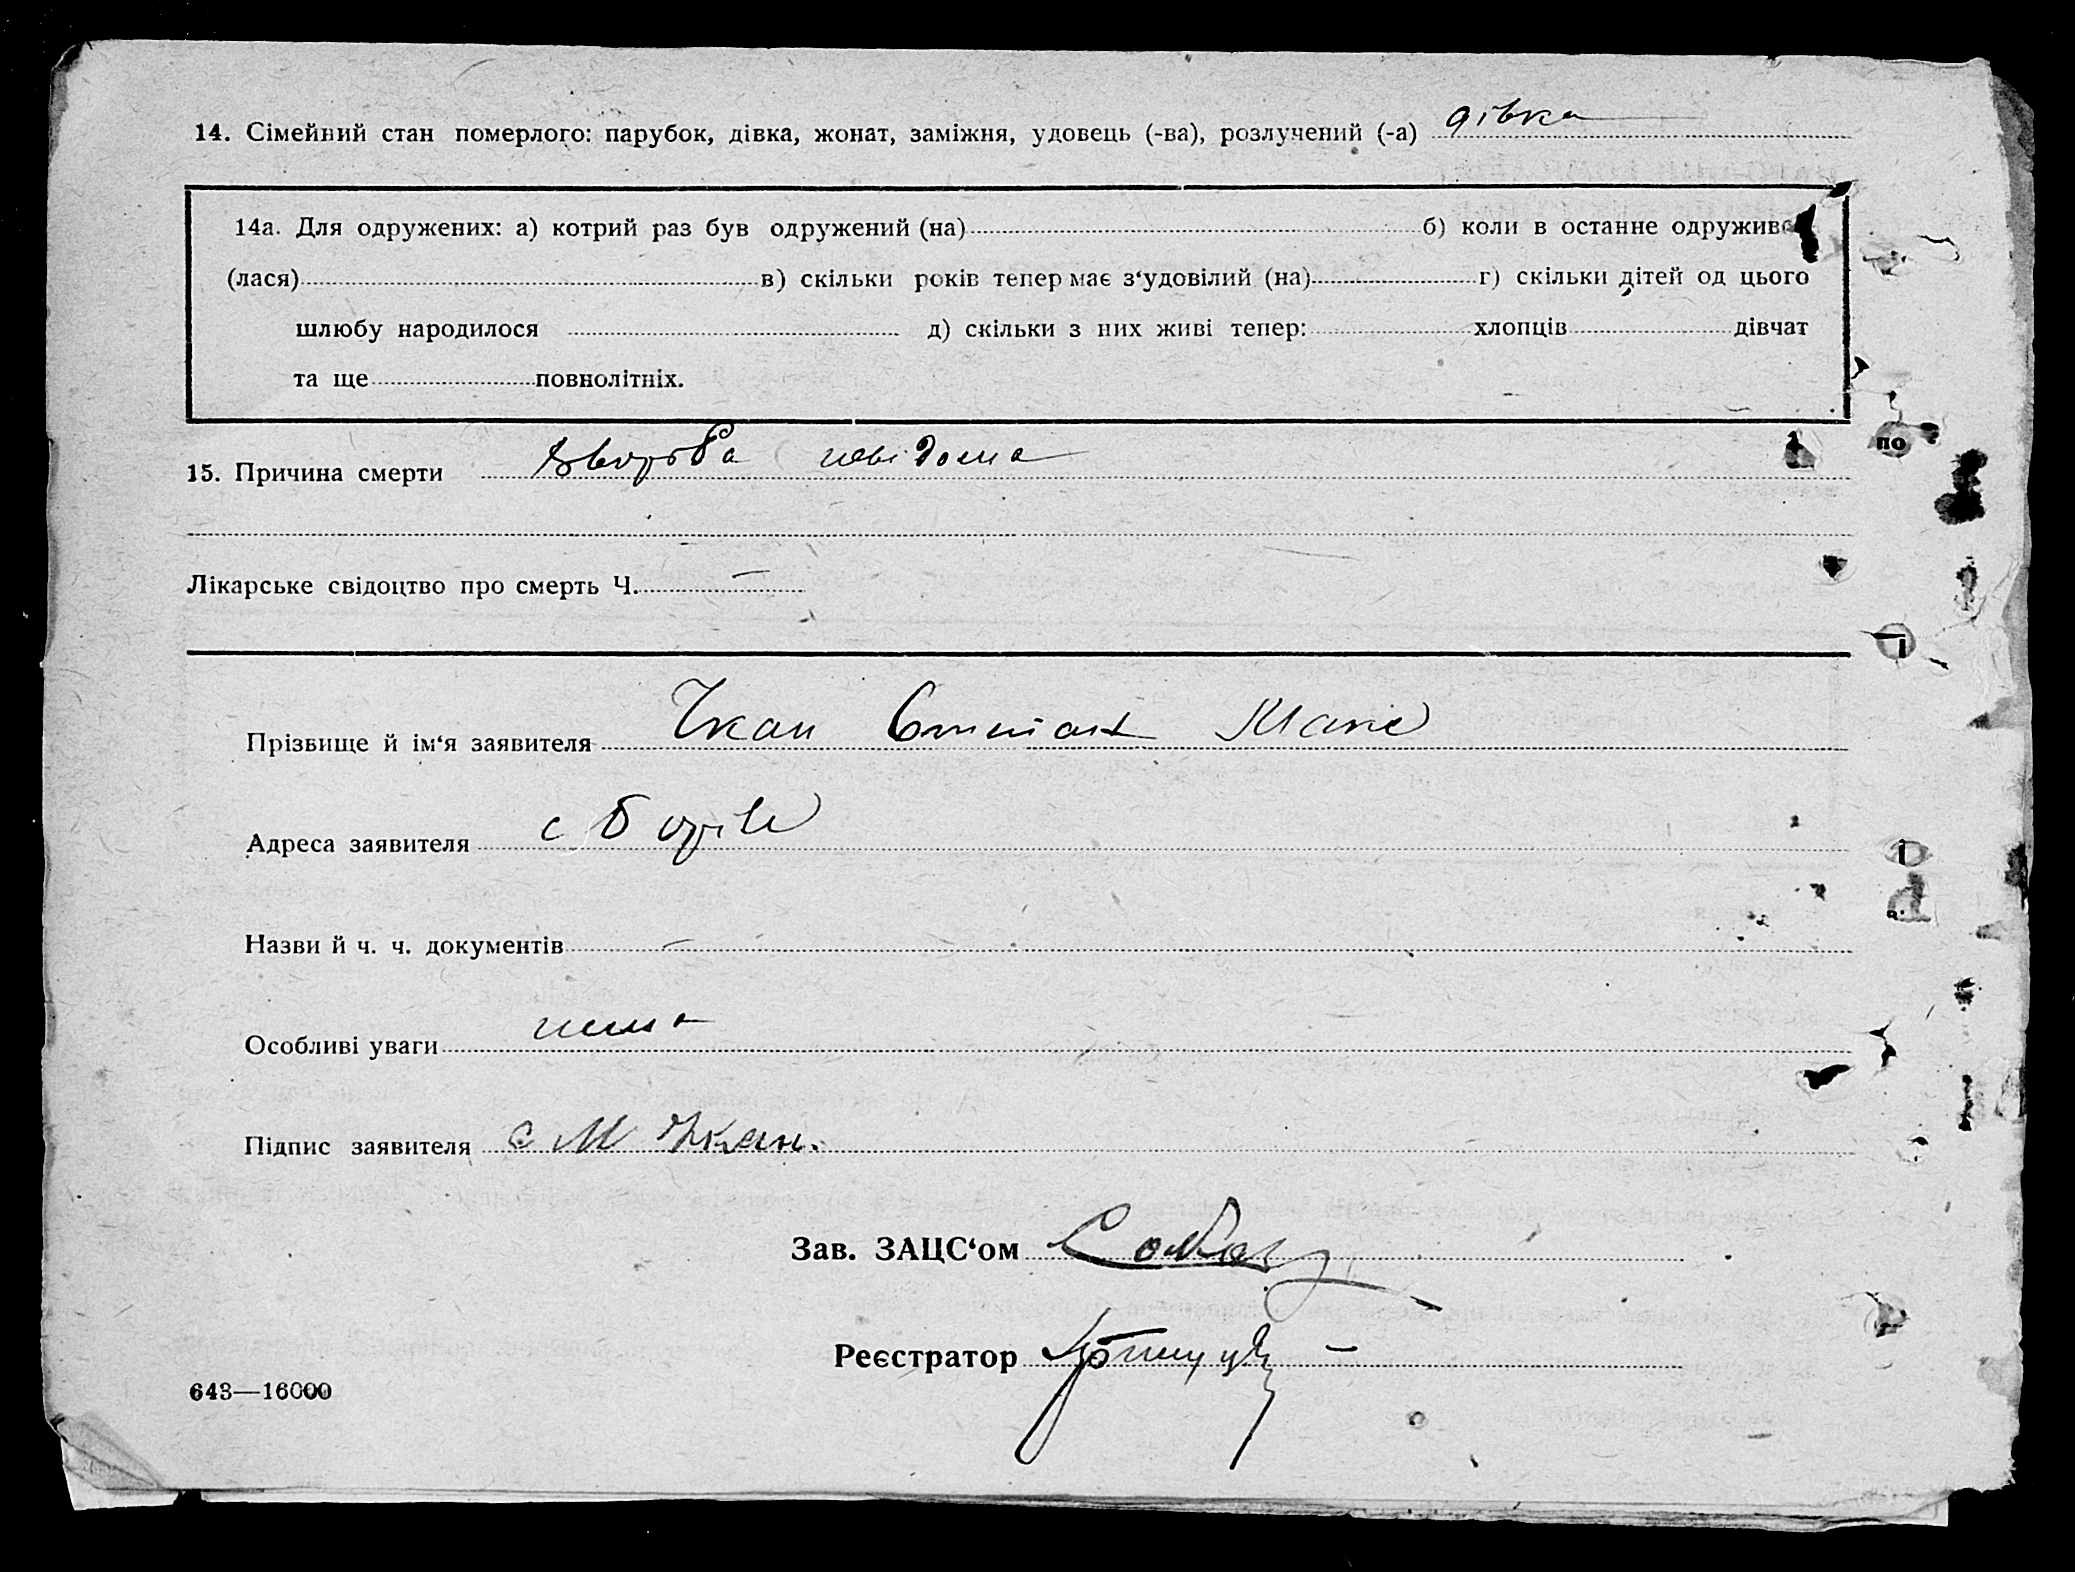 14. Сімейний стан померлого: парубок, дівка, жонат, заміжня, удовець (-ва), розлучений (-а) дівка
14а. Для одружених: а) котрий раз був одружений (на) б) коли в останнє одружив
(лася) в) скільки років тепер має з‘удовілий (на) г) скільки дітей од цього
шлюбу народилося д) скільки з них живі тепер: хлопців дівчат
та ще повнолітніх.
15. Причина смерти невідома
Лікарське свідоцтво про смерть Ч. —
Прізвище й ім‘я заявителя Чкан
Адреса заявителя с
Назви й ч. ч. документів —
Особливі уваги нема
Підпис заявителя с М Чкан.
Зав. ЗАЦС‘ом
Реєстратор
643—16000